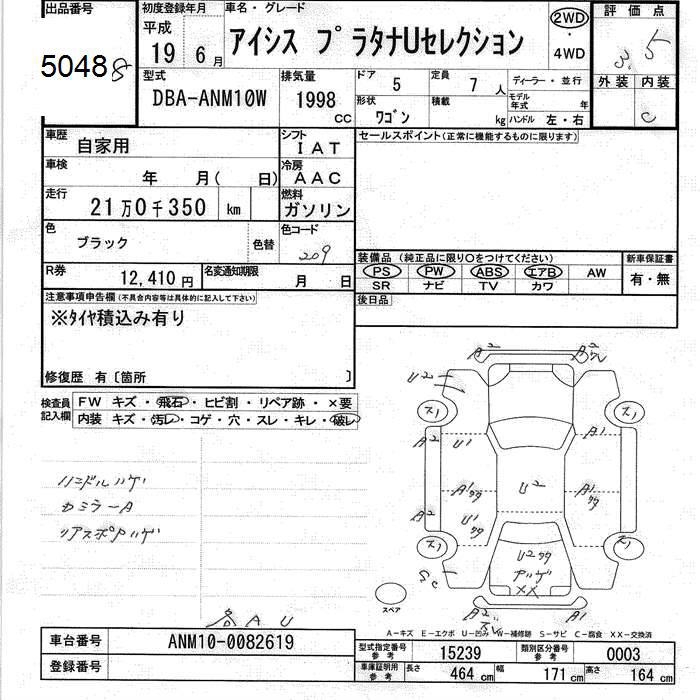 出品番号
50488
初度登録年月
平成
19 6月
車名・グレード
アイシス プラタナUセレクション
2WD
・
4WD
評価点
3.5
外装 内装
C
型式
DBA-ANM10W
排気量
1998
CC
ドア
5
定員
7 人
形状
ワゴン
積載
kg
ディーラー・並行
モデル年式 年
ハンドル 左・右
車歴
自家用
シフト
IAT
車検
年 月( 日)
冷房
AAC
走行
21万0千350 km
燃料
ガソリン
色
ブラック
色替
色コード
209
R券
12,410円
名変通知期限
月 日
セールスポイント(正常に機能するものに限ります)
装備品(純正品に限り○をつけてください)
PS PW ABS エアB AW
SR ナビ TV カワ
新車保証書
有・無
後日品
注意事項申告欄(不具合内容等は具体的に記入して下さい)
※タイヤ積込み有り
修復歴 有〔箇所 〕
検査員記入欄
FW キズ・飛石・ヒビ割・リペア跡・×要
内装 キズ・汚レ・コゲ・穴・スレ・キレ・破レ
ハンドルハゲ
カミラーA
リアスポアハゲ
各AU
A2 A2
U2
A2 U1 A1
A1 U2 A1
A2 U1
U2
アハゲ
XX
A2 A1
スペア
A-キズ E-エクボ U-凹み W-補修跡 S-サビ C-腐食 XX-交換済
車台番号
ANM10-0082619
登録番号
型式指定番号
参考
15239
類別区分番号
参考
0003
車庫証明用
参考
長さ
464 cm
幅
171 cm
高さ
164 cm